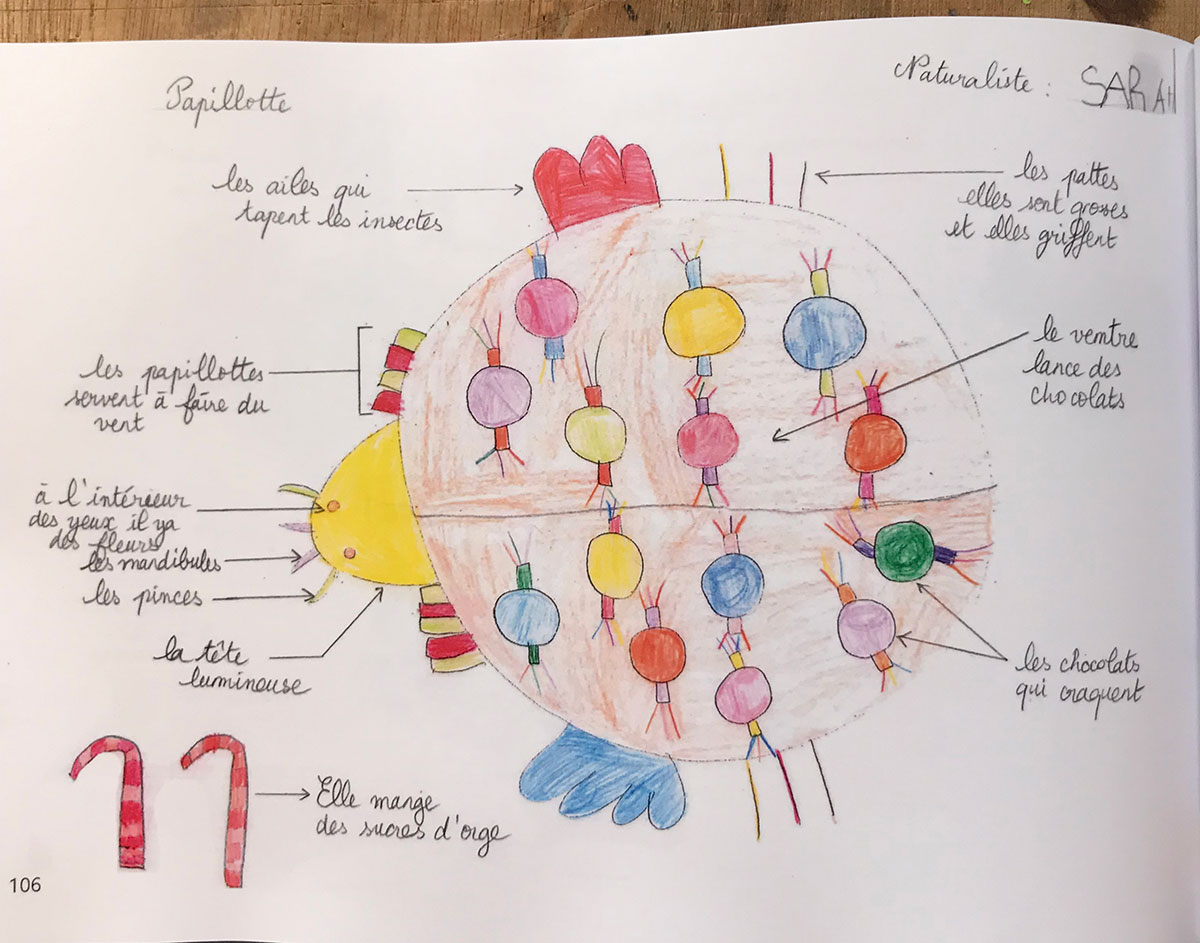 Papillotte
Naturaliste : SARAH
les ailes qui
tapent les insectes
les pattes
elles sont grosses
et elles griffent
le ventre
lance des
chocolats
les papillottes
servent à faire du
vent
à l'intérieur
des yeux il ya
des fleurs
les mandibules
les pinces
la tête
lumineuse
les chocolats
qui craquent
Elle mange
des sucres d'orge
106